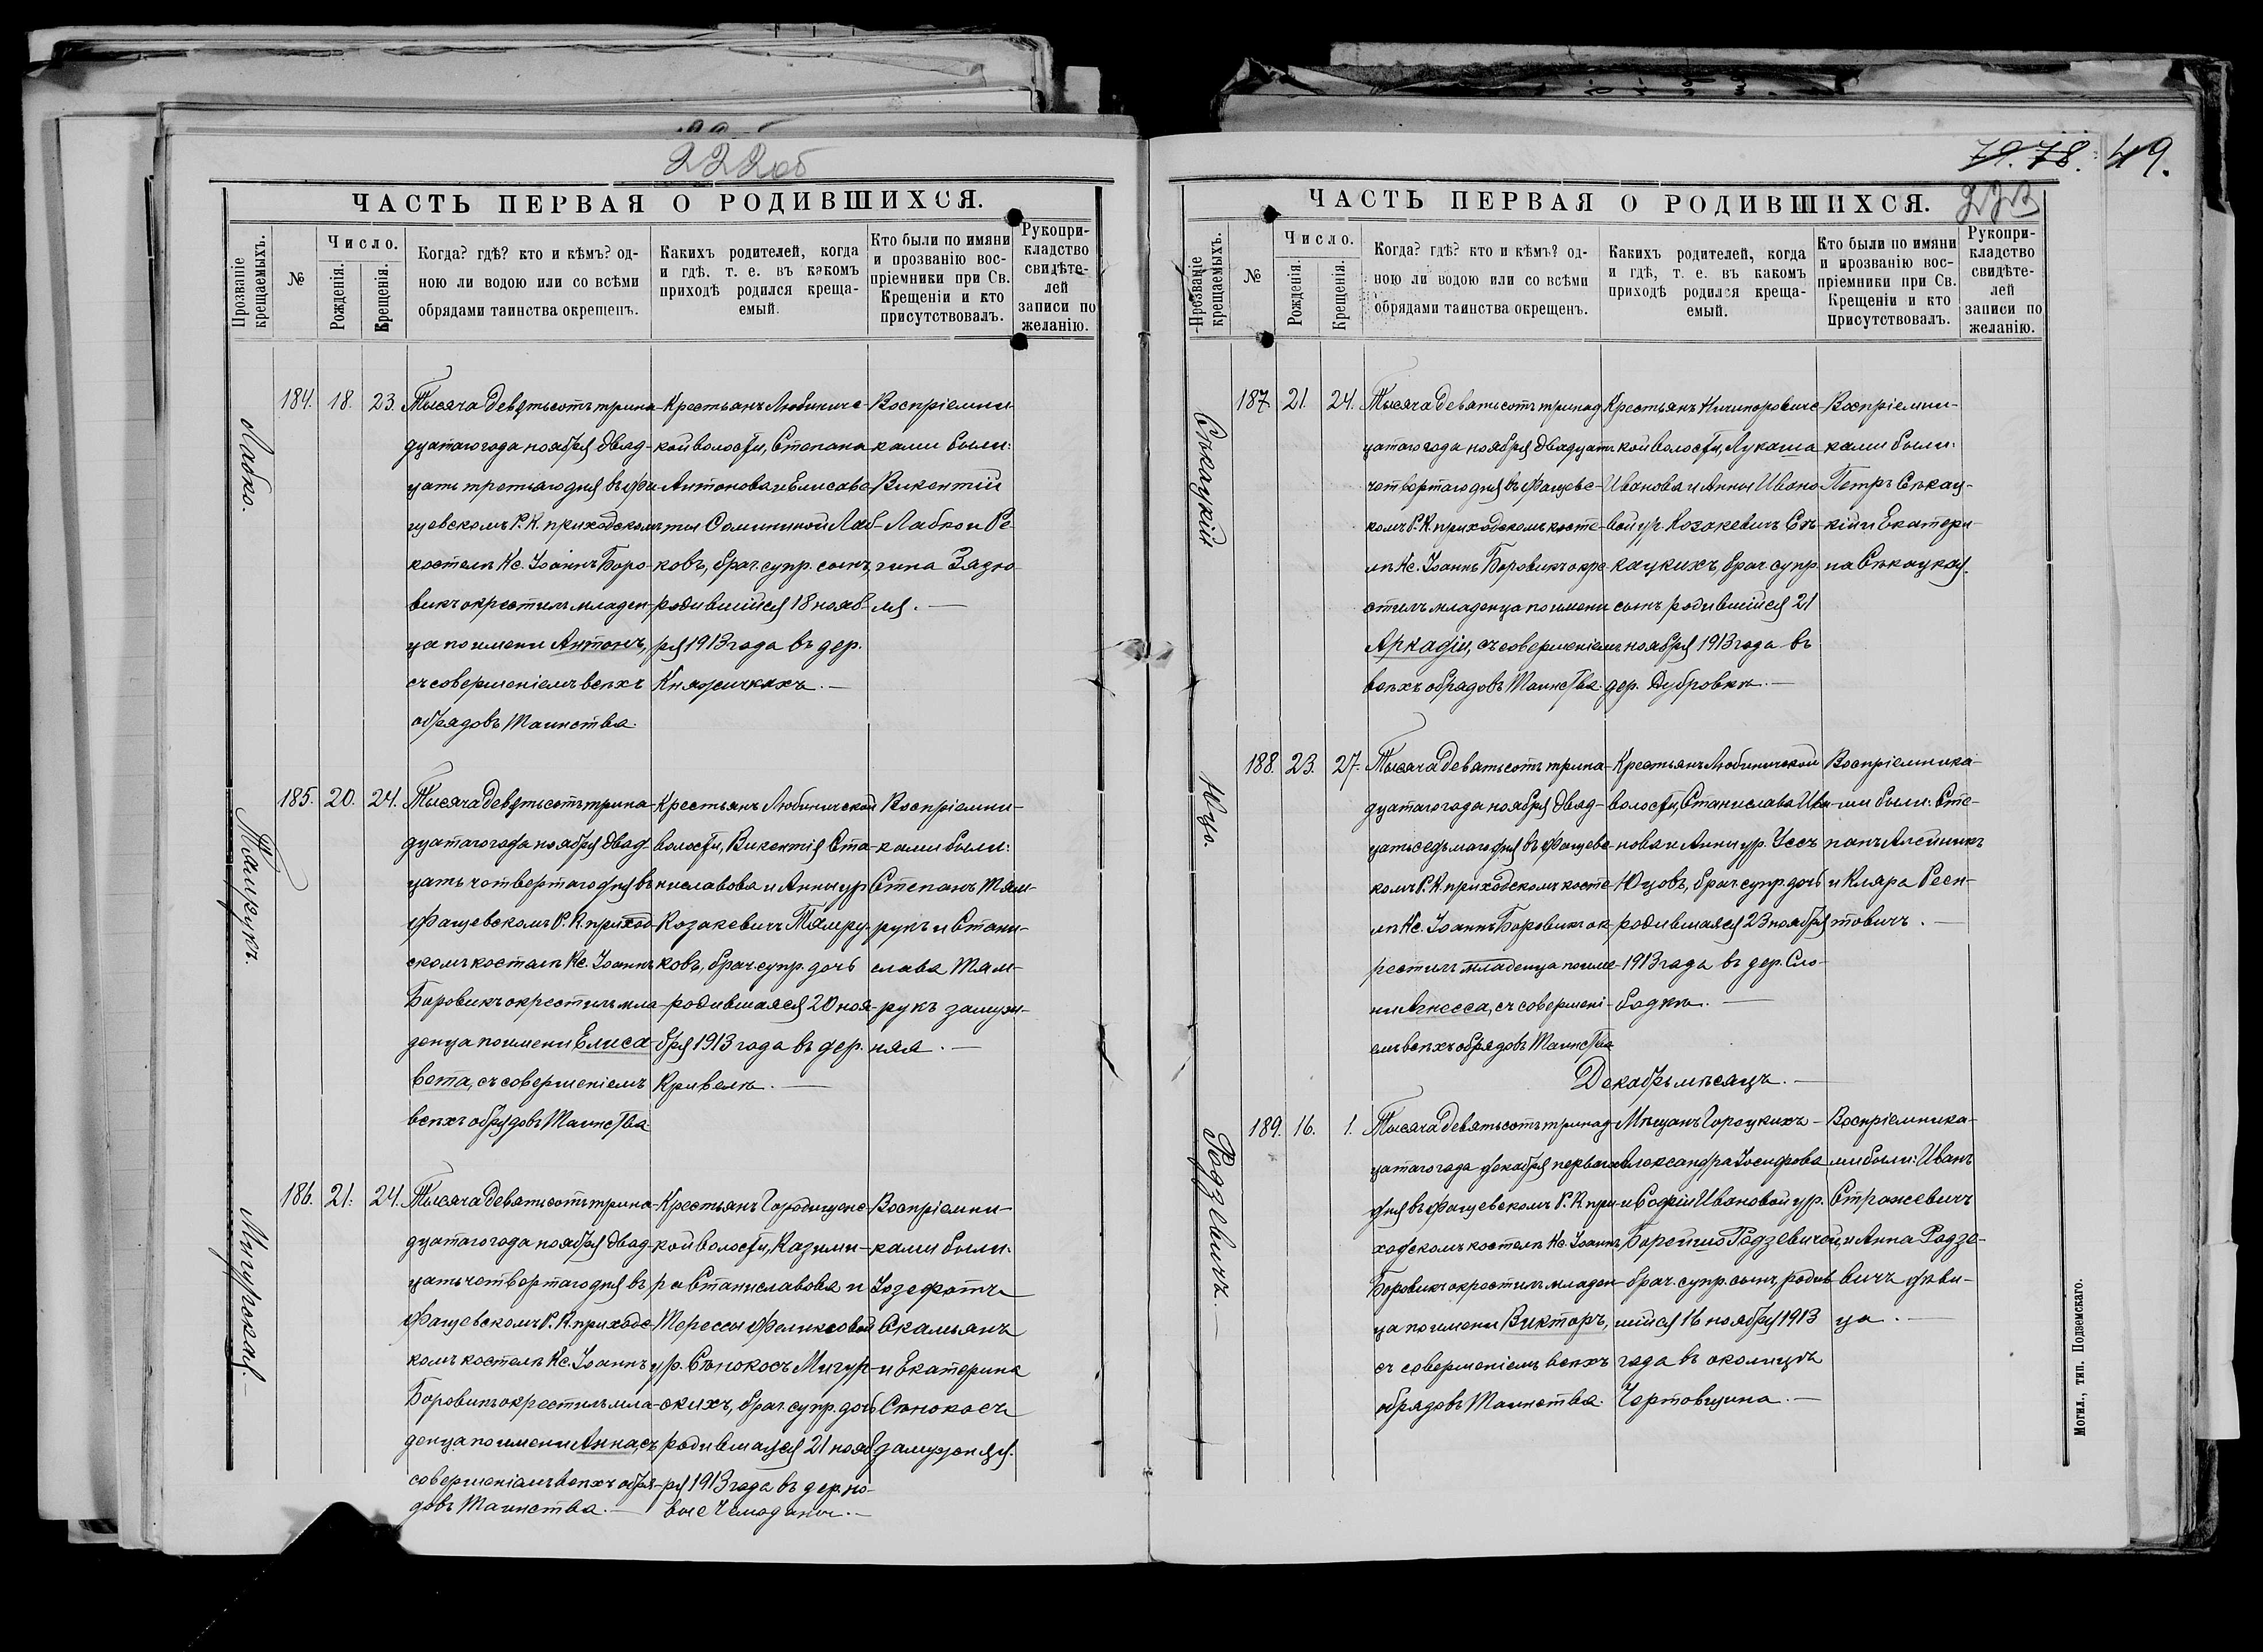 222об
ЧАСТЬ ПЕРВАЯ О РОДИВШИХСЯ.
Прозваніе крещаемыхъ.
№
Число.
Рожденія.
Крещенія.
Когда? гдѣ? кто и кѣмъ? од-
ною ли водою или со всѣми
обрядами таинства окрещенъ.
Какихъ родителей, когда
и гдѣ. т. е. въ какомъ
приходѣ родился креща-
емый.
Кто были по имяни
и прозванію вос-
пріемники при Св.
Крещеніи и кто
присутствовалъ.
Рукопри-
кладство
свидѣте-
лей
записи по
желанію.
Лабко.
184. 18. 23.
Тысяча девятьсотъ трина-
дцатаго года ноября двад-
цать третьяго дня въ Фа-
щевскомъ Р. К. приходскомъ
костелѣ Кс. Іоаннъ Боро-
викъ окрестилъ младен-
ца по имени Антонъ,
съ совершеніемъ всѣхъ
обрядовъ Таинства.
Крестьянъ Любиничс-
кой волости, Степана
Антонова и Елисаве-
ты Лаб-
ковъ, брач. супр. сынъ,
родившійся 18 нояб-
ря 1913 года въ дер.
Княжичкахъ.—
Воспріемни-
ками были:
Викентій
Лабко и Ре-
гина Зязю-
ля.—
Тамкукъ.
185. 20. 24.
Тысяча девятьсотъ трина-
дцатаго года ноября двад-
цать четвертаго дня въ
Фащевскомъ Р. К. приход-
скомъ костелѣ Кс. Іоаннъ
Боровикъ окрестилъ мла-
денца по имени Елиса-
вета, съ совершеніемъ
всѣхъ обрядовъ Таинства.
Крестьянъ Любиничской
волости, Викентія Ста-
ниславова и Анны ур.
Козакевичъ Тамру-
ковъ, брач. супр. дочь
родившаяся 20 ноя-
бря 1913 года въ дер.
Кривелѣ.—
Воспріемни-
ками были:
Степанъ Там-
рукъ и Стани-
слава Там-
рукъ замуж-
няя.—
Мигурская.—
186. 21. 24.
Тысяча девятьсотъ трина-
дцатаго года ноября двад-
цать четвертаго дня въ
Фащевскомъ Р. К. приходс-
комъ костелѣ Кс. Іоаннъ
Боровикъ окрестилъ мла-
денца по имени Анна, съ
совершеніемъ всѣхъ обря-
довъ Таинства.—
Крестьянъ Городищенс-
кой волости, Казими-
ра Станиславова и
Терессы Феликсовой
ур. Сѣнокосъ Мигур-
скихъ, брач. супр. дочь
родившаяся 21 нояб-
ря 1913 года въ дер. Но-
вые Чемоданы.—
Воспріемни-
ками были:
Іозефатъ
Скамьянъ
и Екатерина
Сѣнокосъ
замужняя.
79. 78. 49.
223
ЧАСТЬ ПЕРВАЯ О РОДИВШИХСЯ.
Прозваніе крещаемыхъ.
№
Число.
Рожденія.
Крещенія.
Когда? гдѣ? кто и кѣмъ? од-
ною ли водою или со всѣми
обрядами таинства окрещенъ.
Какихъ родителей, когда
и гдѣ, т. е. въ какомъ
приходѣ родился креща-
емый.
Кто были по имяни
и прозванію вос-
пріемники при Св.
Крещеніи и кто
присутствовалъ.
Рукопри-
кладство
свидѣте-
лей
записи по
желанію.
Сѣкацкій
187. 21. 24.
Тысяча девятьсотъ тринад-
цатаго года ноября двадцать
четвертаго дня въ Фащевс-
комъ Р. К. приходскомъ косте-
лѣ Кс. Іоаннъ Боровикъ окре-
стилъ младенца по имени
Аркадій, съ совершеніемъ
всѣхъ обрядовъ Таинства.
Крестьянъ Ничипоровичс-
кой волости, Лукаша
Иванова и Анны Ивано-
вой ур. Козакевичъ Сѣ-
кацкихъ, брач. супр.
сынъ родившійся 21
ноября 1913 года въ
дер. Дубровкѣ.—
Воспріемни-
ками были:
Петръ Сѣкац-
кій и Екатери-
на Сѣкацкая.
Юцо.
188. 23. 27.
Тысяча девятьсотъ трина-
дцатаго года ноября двад-
цать седьмаго дня въ Фащевс-
комъ Р. К. приходскомъ косте-
лѣ Кс. Іоаннъ Боровикъ ок-
рестилъ младенца по име-
ни Агнесса, съ совершені-
емъ всѣхъ обрядовъ Таинства
Крестьянъ Любиничской
волости, Станислава Ива-
нова и Анны ур. Усъ
Юцовъ, брач. супр. дочь
родившаяся 23 ноября
1913 года въ дер. Сло-
бодкѣ.—
Воспріемника-
ми были: Сте-
панъ Алейникъ
и Кляра Реен-
товичъ.—
Декабрь мѣсяцъ.—
Родзевичъ.—
189. 16. 1.
Тысяча девятьсотъ тринад-
цатаго года декабря перваго
дня въ Фащевскомъ Р. К. при-
ходскомъ костелѣ Кс. Іоаннъ
Боровикъ окрестилъ младен-
ца по имени Викторъ,
съ совершеніемъ всѣхъ
обрядовъ Таинства.
Мѣщанъ Горецкихъ—
Александра Іосифова
и Софіи Ивановой ур.
Борейшо Радзевичей,
брач. супр. сынъ, родив-
шійся 16 ноября 1913
года въ околицѣ
Чертовщина.—
Воспріемника-
ми были: Иванъ
Стражевичъ
и Анна Радзе-
вичъ дѣви-
ца.—
Могил., тип. Подземскаго.